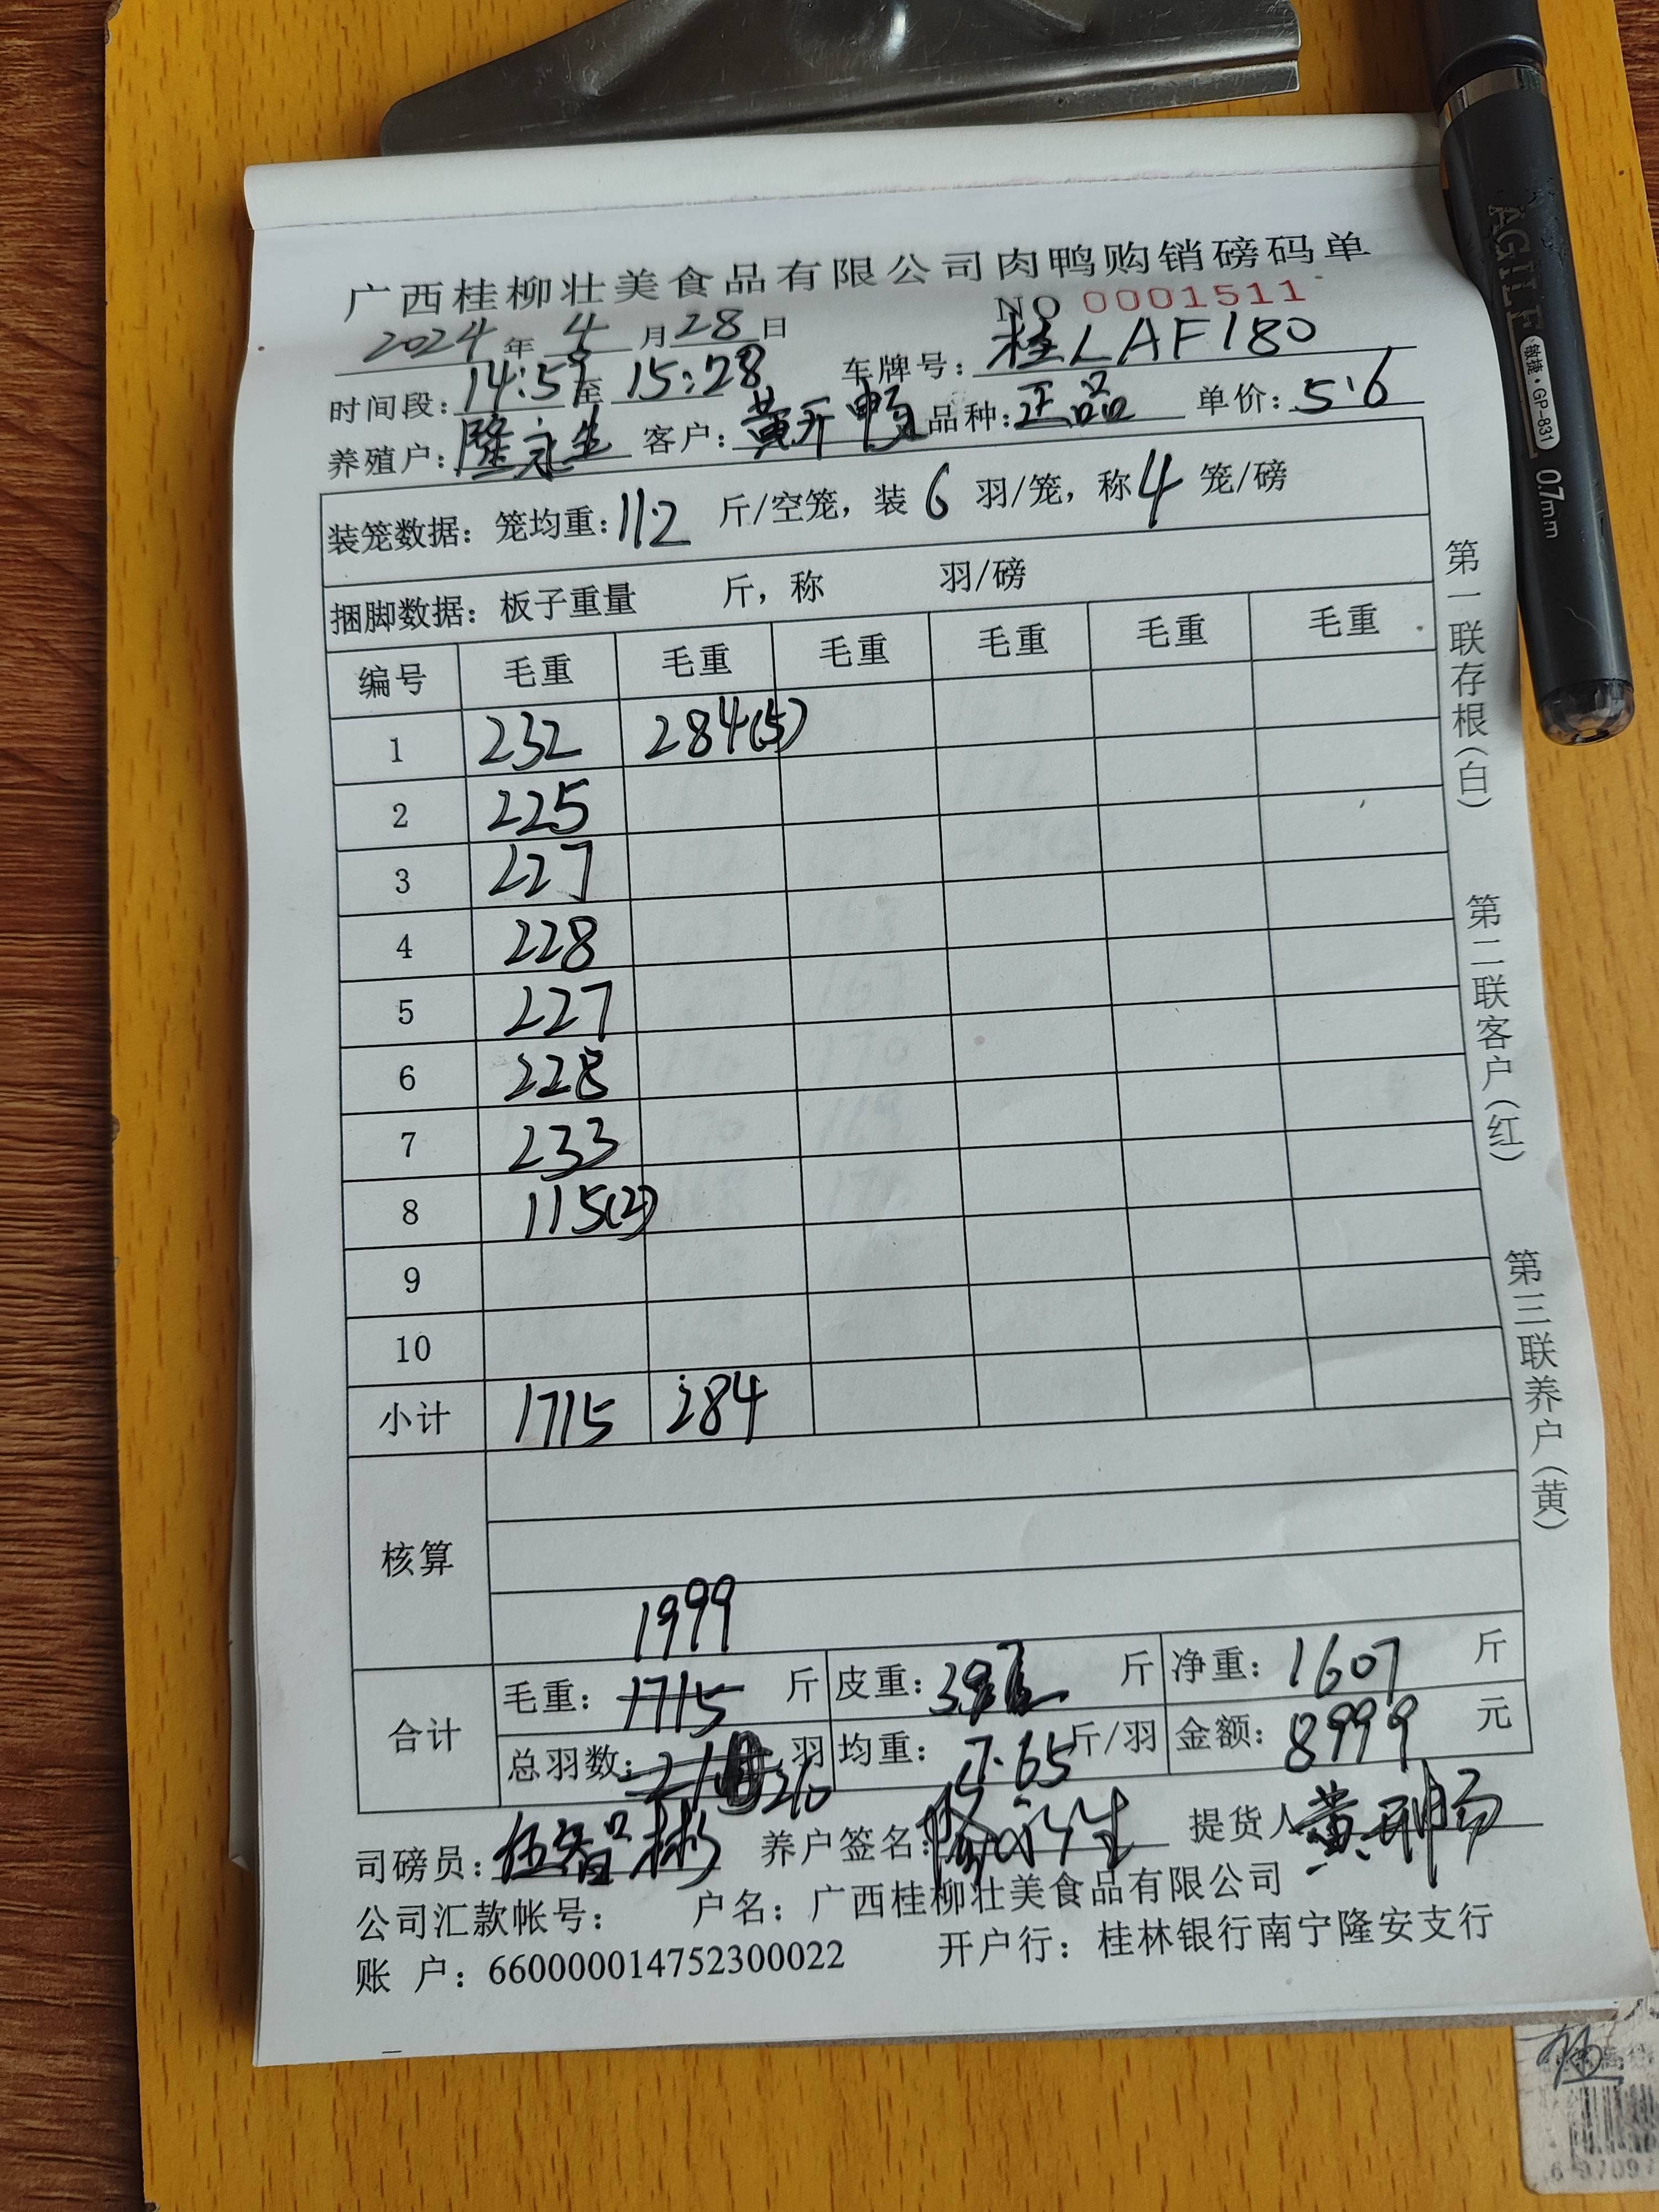 广西桂柳壮美食品有限公司肉鸭购销磅码单
2024年4月28日 NO 0001511
时间段：14:59至15:28 车牌号：桂LAF180
养殖户：隆永生 客户：黄开 品种：正品 单价：5.6
装笼数据：笼均重：11.2 斤/空笼，装6羽/笼，称4笼/磅
捆脚数据：板子重量 斤，称 羽/磅
编号 毛重 毛重 毛重 毛重 毛重 毛重
1 232 284(5)
2 225
3 227
4 228
5 227
6 228
7 233
8 115(2)
9
10
小计 1715 284
核算
1999
合计 毛重：1715 斤 皮重： 斤 净重：1607 斤
总羽数： 210 羽 均重：7.65斤/羽 金额：8999 元
司磅员：伍智彬 养户签名：隆永生 提货人 黄
公司汇款帐号： 户名：广西桂柳壮美食品有限公司
账 户：660000014752300022 开户行：桂林银行南宁隆安支行
第一联存根（白） 第二联客户（红） 第三联养户（黄）
AGILE 敏捷·GP-831 0.7mm